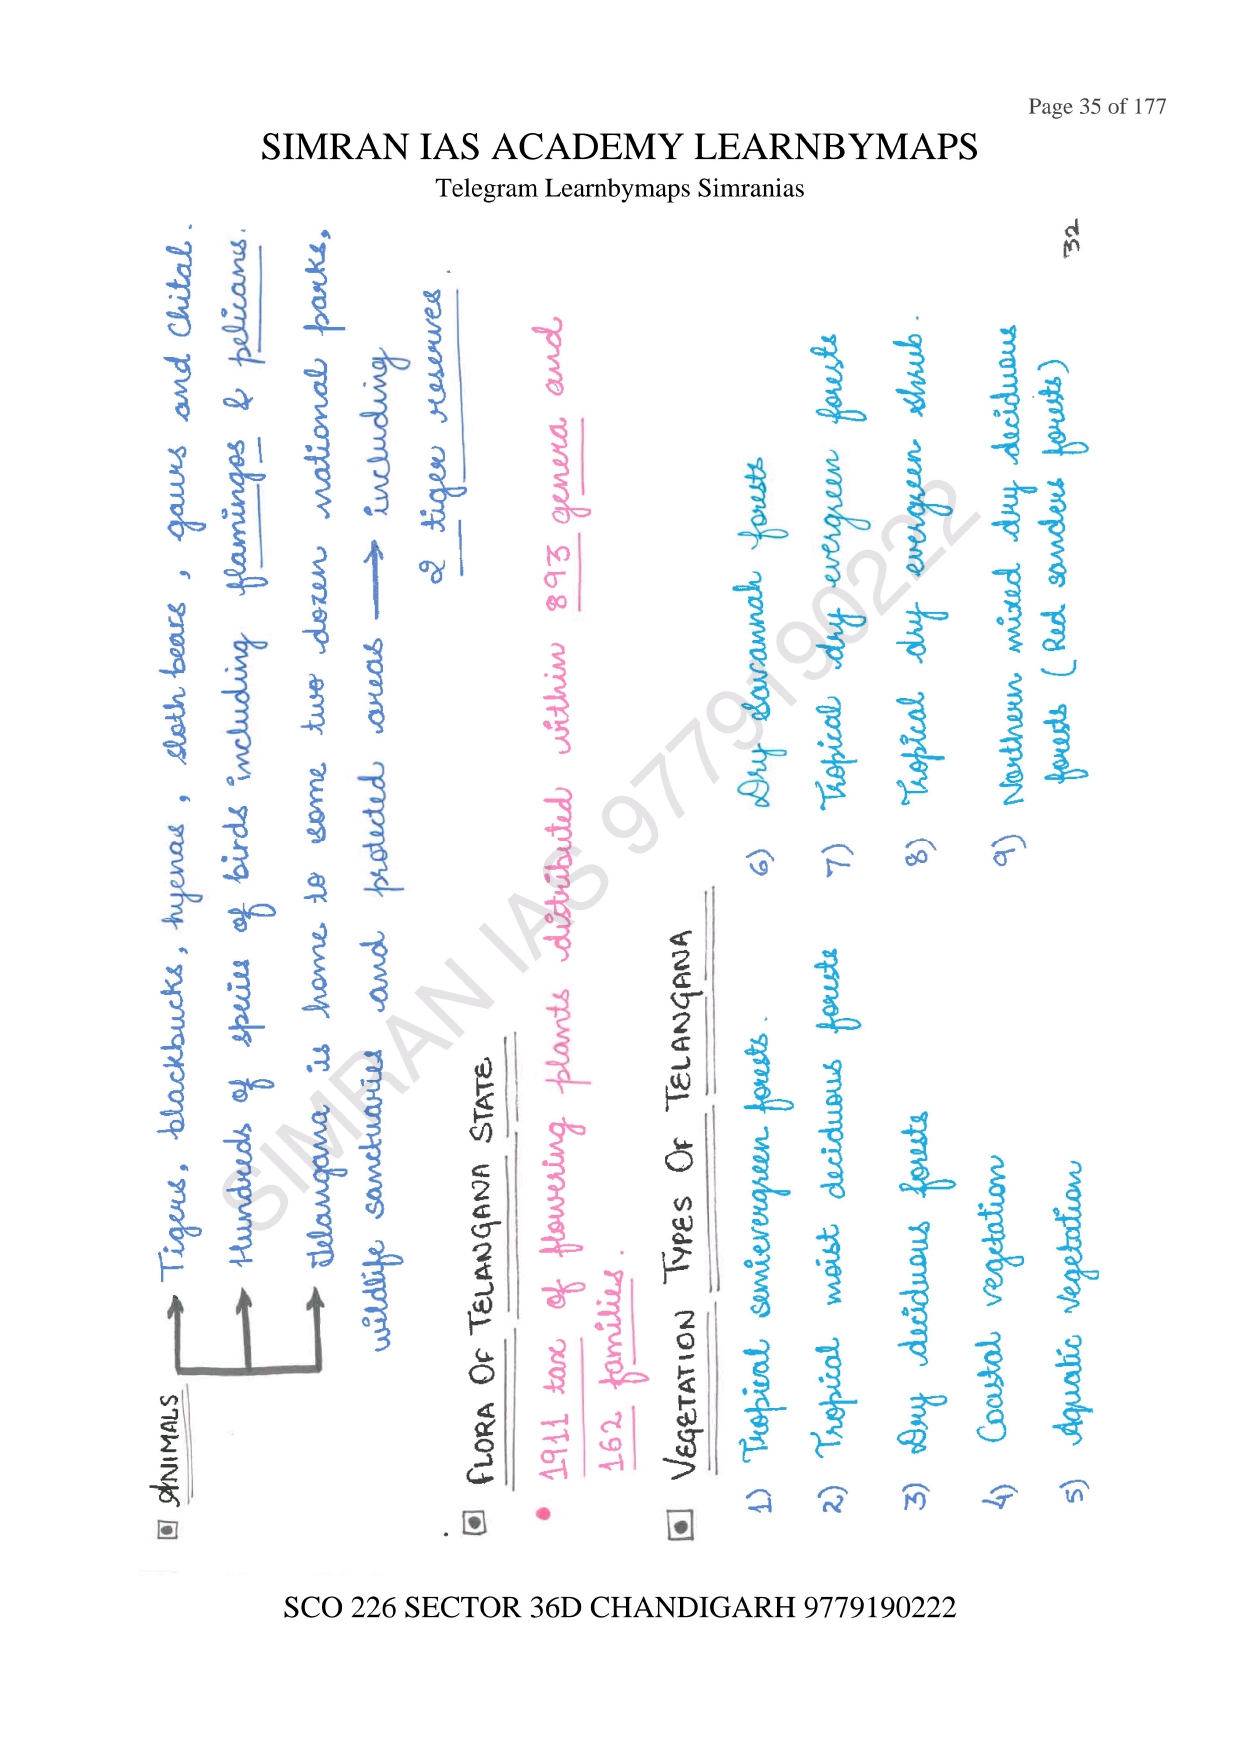 Page 35 of 177
SIMRAN IAS ACADEMY LEARNBYMAPS
Telegram Learnbymaps Simranias
ANIMALS
Tigers, blackbucks, hyenas, sloth bears, gaurs and Chital.
Hundreds of species of birds including flamingos & pelicans.
Telangana is home to some two dozen national parks,
wildlife sanctuaries and protected areas → including
2 tiger reserves.
FLORA OF TELANGANA STATE
• 1911 tax of flowering plants distributed within 893 genera and
162 families.
VEGETATION TYPES OF TELANGANA
1) Tropical semievergreen forests.
2) Tropical moist deciduous forests
3) Dry deciduous forests
4) Coastal vegetation
5) Aquatic vegetation
6) Dry Savannah forests
7) Tropical dry evergreen forests
8) Tropical dry evergreen shrub.
9) Northern mixed dry deciduous
forests (Red sanders forests)
32
SIMRAN IAS 9779190222
SCO 226 SECTOR 36D CHANDIGARH 9779190222